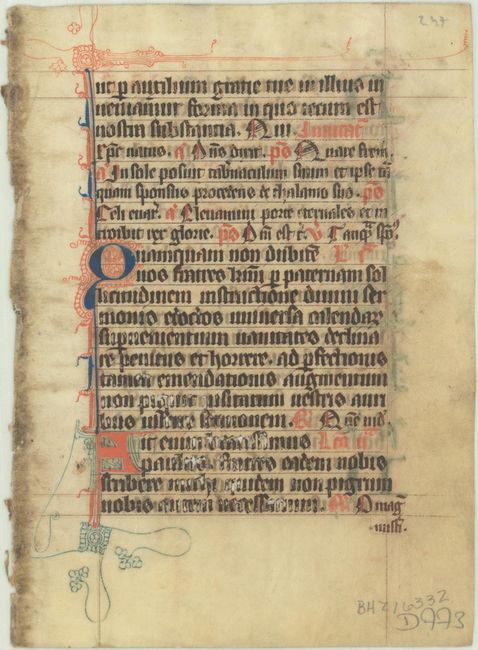 247
ut p auxilium gratie tue in illius in
ueniamur forma in quo tecum est
nostra substancia. Q ui. Inuitat
Xpc natus. a Dns dixit. ps Quare frem.
a In sole posuit tabernaculum suum et ipse tn
quam sponsus procedens de thalamo suo. ps
Celi enar. a Eleuamini porte eternales et in
troibit rex glorie. ps Dni est t. V Tanq sps.
Quamquam non dubitem
uos fratres krmi p paternam sol
licitudinem instructione diuini ser
monis edoctos uniuersa calendarum
superuenientium uanitates declina
re penitus et horrere. ad pfectionis
tamen emendationis augmentum
non pigeat usitatum uestris auri
bus inferre sermonem.
it enim beatissimus
paulus. fratres eadem nobis
scribere michi quidem non pigrum
uobis autem necessarium. O mag
BHZ16332
D993